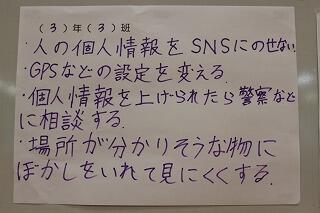 （3）年（3）班
・人の個人情報をSNSにのせない
・GPSなどの設定を変える.
・個人情報を上げられたら警察など
に相談する.
・場所が分かりそうな物に
ぼかしをいれて見にくくする.